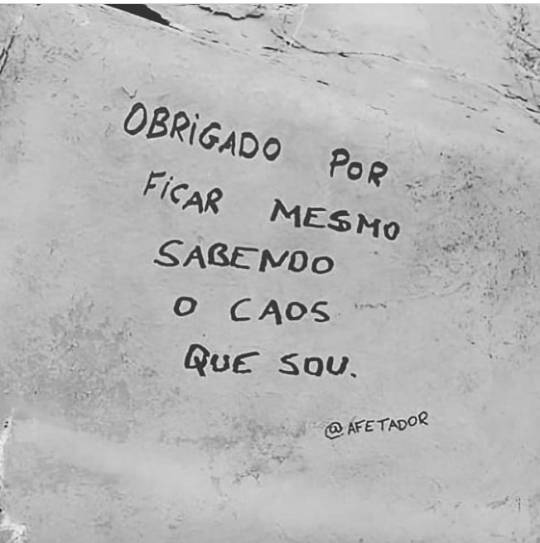 OBRIGADO POR
FICAR MESMO
SABENDO
O CAOS
QUE SOU.
@AFETADOR